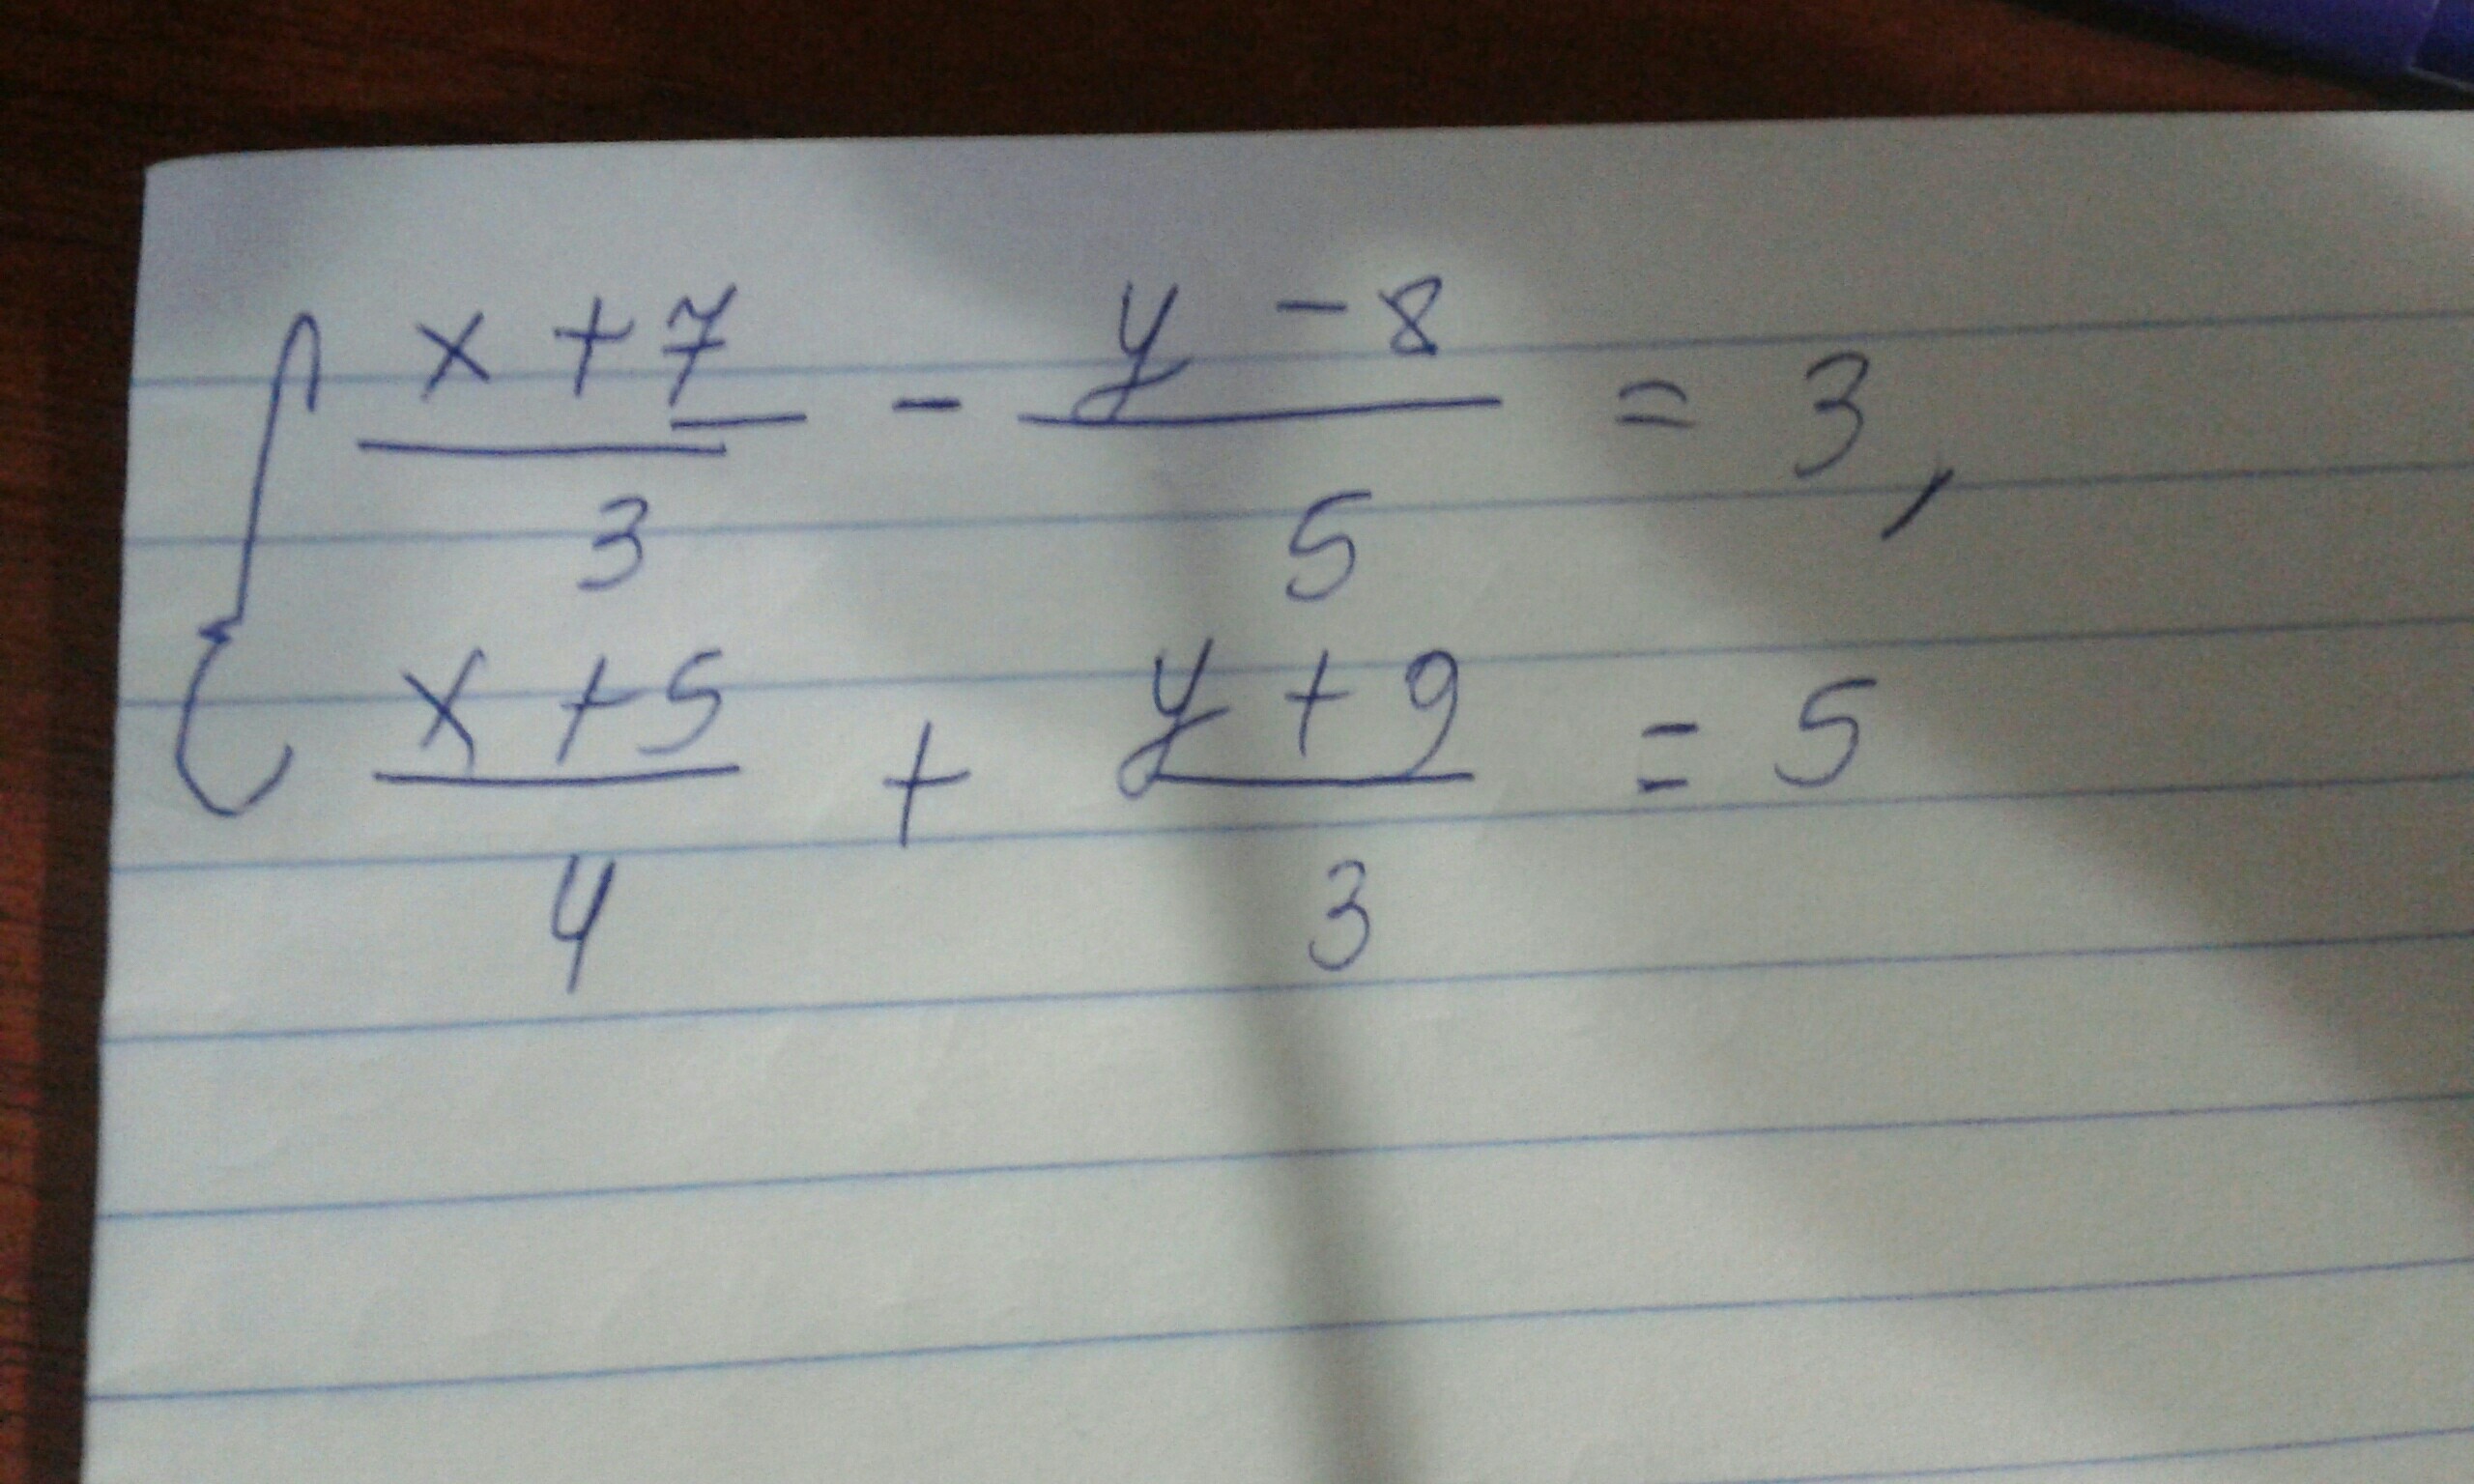 { (x + 7)/3 - (y - 8)/5 = 3,
(x + 5)/4 + (y + 9)/3 = 5